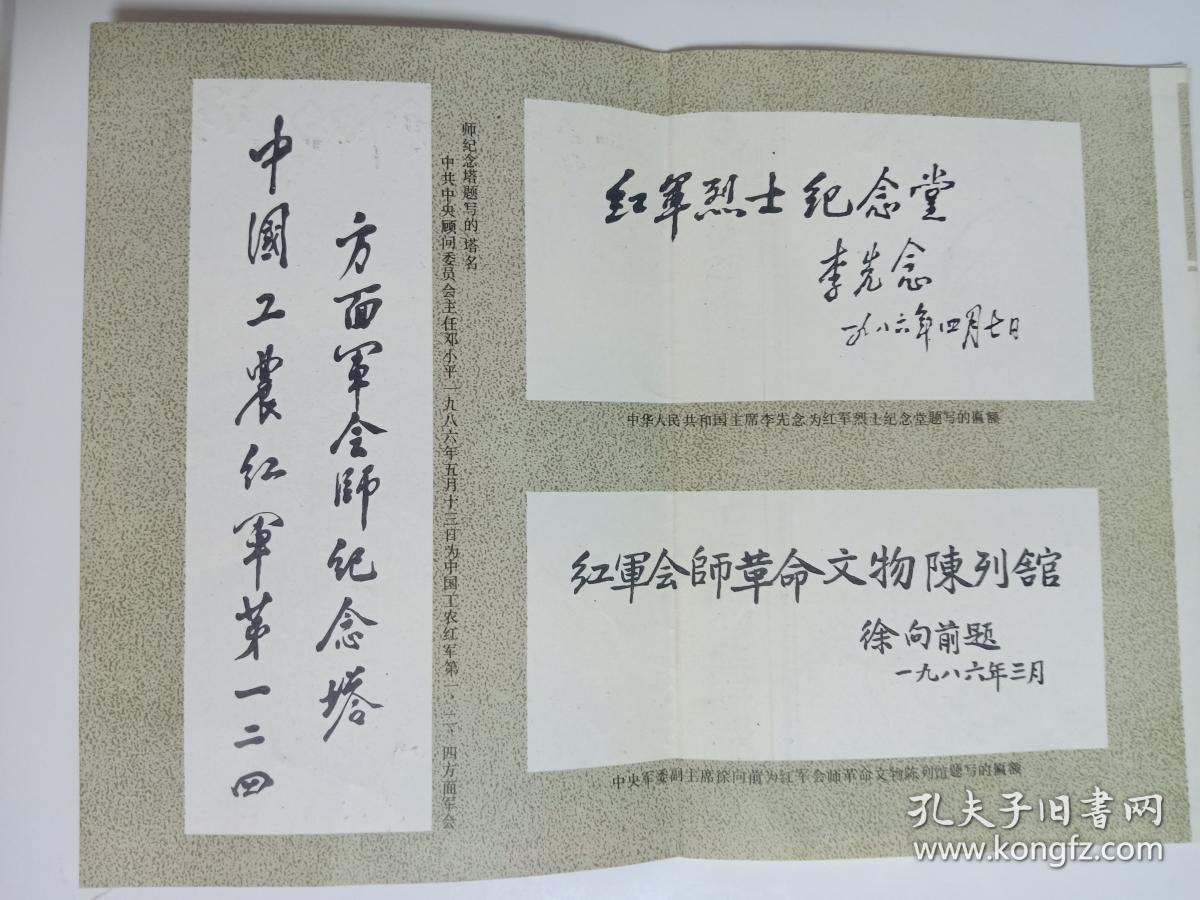 中國工農红軍第一二四
方面軍会師纪念塔
中共中央顾问委员会主任邓小平一九八六年五月十三日为中国工农红军第一、二、四方面军会
师纪念塔题写的塔名
红军烈士纪念堂
李先念
一九八六年四月七日
中华人民共和国主席李先念为红军烈士纪念堂题写的匾额
红軍会師革命文物陳列舘
徐向前题
一九八六年三月
中央军委副主席徐向前为红军会师革命文物陈列馆题写的匾额
孔夫子旧书网
www.kongfz.com